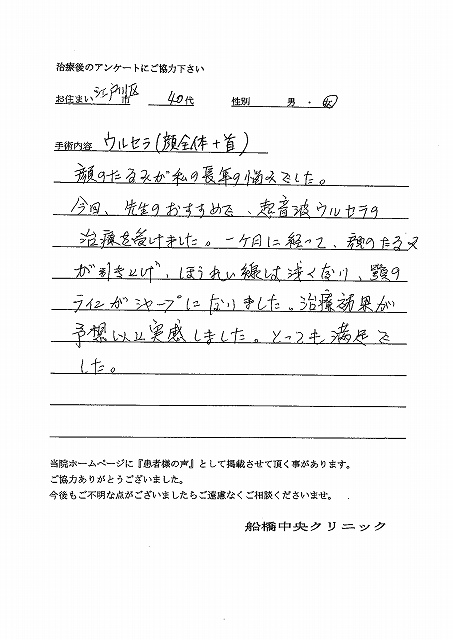 治療後のアンケートにご協力下さい
お住まい 江戸川区 市 40代 性別 男・女
手術内容 ウルセラ(顔全体+首)
顔のたるみが私の長年の悩みでした。
今回、先生のおすすめで、超音波ウルセラの
治療を受けました。一ケ月に経って、顔のたるみ
が引き上げ、ほうれい線は浅くなり、顎の
ラインがシャープになりました。治療効果が
予想以上実感しました。とっても満足で
した。
当院ホームページに『患者様の声』として掲載させて頂く事があります。
ご協力ありがとうございました。
今後もご不明な点がございましたらご遠慮なくご相談くださいませ。
船橋中央クリニック